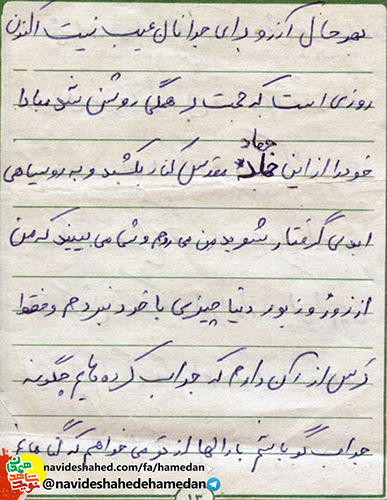 بهر حال آرزو برای جوانان عیب نیست اکنون
روزی است که حجت بر همگی روشن شد مبادا
جهاد
خود را از این مقدس کنار بکشید و به روسیاهی
ابدی گرفتار شوید من می روم و شما می بینید که من
از زر و زیور دنیا چیزی با خود نبردم و فقط
ترس از آن دارم که جواب کرده هایم چگونه
جواب گو باشم بارالها از تو می خواهم که گناهانم
navideshahed.com/fa/hamedan
@navideshahedehamedan
۱۳